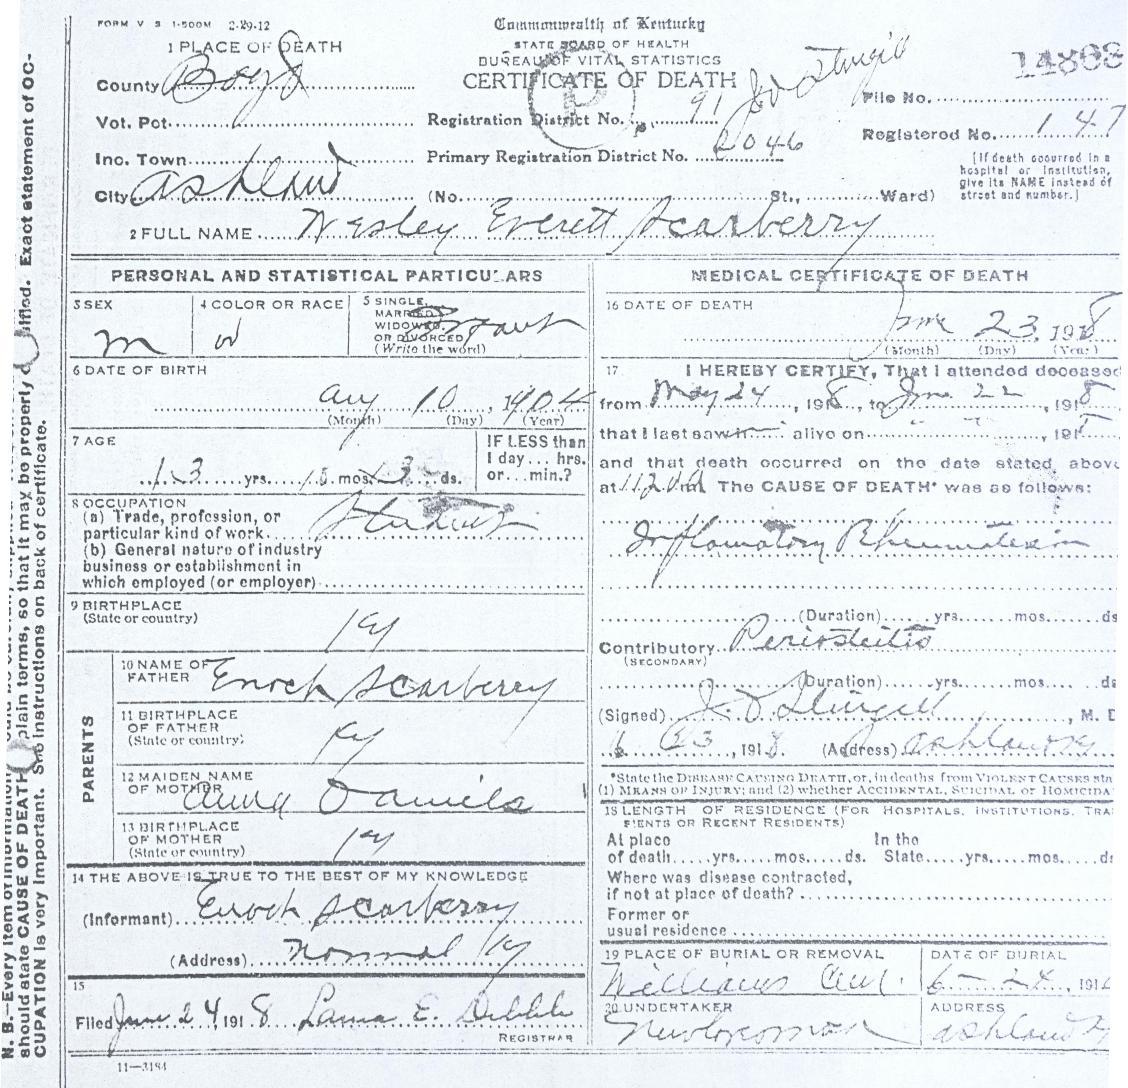 FORM V S 1-500M 2-29-12
Commonwealth of Kentucky
STATE BOARD OF HEALTH
BUREAU OF VITAL STATISTICS
CERTIFICATE OF DEATH
J D Sturgill
1 PLACE OF DEATH
County Boyd
File No.
Vot. Pct. Registration District No. 91
Registered No. 147
Inc. Town Primary Registration District No. 2046
[If death occurred in a
hospital or institution,
give its NAME instead of
street and number.]
City Ashland (No. St., Ward)
2 FULL NAME Wesley Everett Scarberry
PERSONAL AND STATISTICAL PARTICULARS
3 SEX
m
4 COLOR OR RACE
w
5 SINGLE,
MARRIED,
WIDOWED,
OR DIVORCED
(Write the word)
6 DATE OF BIRTH
Aug 10, 1904
(Month) (Day) (Year)
7 AGE
13 yrs. 10 mos. 13 ds.
IF LESS than
1 day... hrs.
or...min.?
8 OCCUPATION
(a) Trade, profession, or
particular kind of work Student
(b) General nature of industry
business or establishment in
which employed (or employer)
9 BIRTHPLACE
(State or country)
Ky
PARENTS
10 NAME OF
FATHER Enoch Scarberry
11 BIRTHPLACE
OF FATHER
(State or country)
Ky
12 MAIDEN NAME
OF MOTHER Anna Daniels
13 BIRTHPLACE
OF MOTHER
(State or country)
Ky
14 THE ABOVE IS TRUE TO THE BEST OF MY KNOWLEDGE
(Informant) Enoch Scarberry
(Address) Normal Ky
15
Filed June 24 1918 E.
REGISTRAR
11-3184
MEDICAL CERTIFICATE OF DEATH
16 DATE OF DEATH
June 23, 1918
(Month) (Day) (Year)
17. I HEREBY CERTIFY, That I attended deceased
from May 24, 1918, to June 22, 1918
that I last saw h alive on , 191
and that death occurred on the date stated above
at m. The CAUSE OF DEATH* was as follows:
Inflamatory Rheumatism
(Duration) yrs. mos. ds
Contributory Periosteitis
(SECONDARY)
(Duration) yrs. mos. ds
(Signed) J D Sturgill, M. D
6 23, 1918 (Address) Ashland Ky
*State the DISEASE CAUSING DEATH, or, in deaths from VIOLENT CAUSES sta
(1) MEANS OF INJURY; and (2) whether ACCIDENTAL, SUICIDAL or HOMICIDA
18 LENGTH OF RESIDENCE (FOR HOSPITALS, INSTITUTIONS, TRA
SIENTS OR RECENT RESIDENTS)
At place In the
of death yrs. mos. ds. State yrs. mos. ds
Where was disease contracted,
if not at place of death?
Former or
usual residence
19 PLACE OF BURIAL OR REMOVAL
Williams Cem.
DATE OF BURIAL
6-24, 191
20 UNDERTAKER
ADDRESS
Ashland Ky
N. B.—Every item of information
should state CAUSE OF DEATH plain terms, so that it may be properly Exact statement of OC-
CUPATION is very important. See instructions on back of certificate.